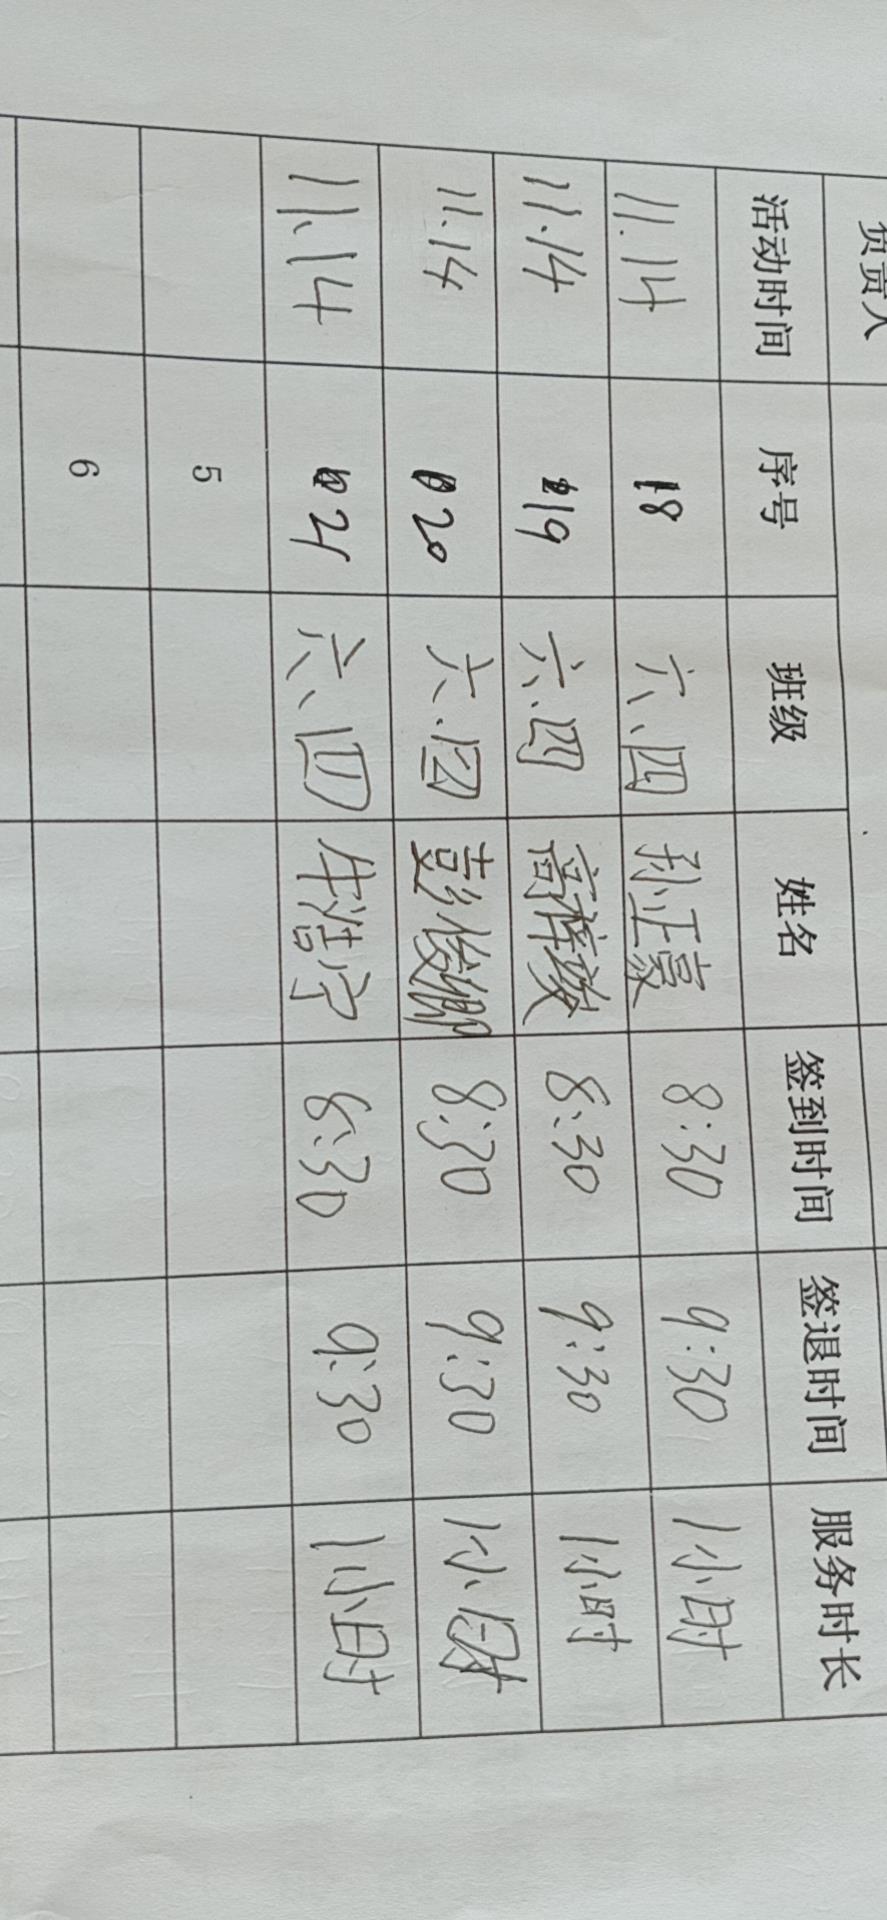 负责人
活动时间 序号 班级 姓名 签到时间 签退时间 服务时长
11.14 18 六、四 孙正豪 8:30 9:30 1小时
11.14 19 六、四 高梓竣 8:30 9:30 1小时
11.14 20 六、四 彭俊 8:30 9:30 1小时
11.14 21 六、四 牛浩宁 8:30 9:30 1小时
5
6